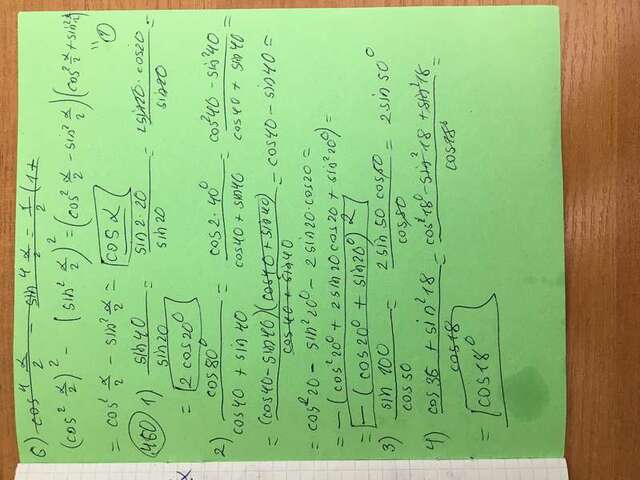 6) cos⁴ α/2 - sin⁴ α/2 = 1/2 (1+
(cos² α/2)² - (sin² α/2)² = (cos² α/2 - sin² α/2)(cos² α/2 + sin² α/2)
"1
= cos² α/2 - sin² α/2 = cos α
460 1) sin40/sin20 = sin2·20/sin20 = 2sin20·cos20/sin20 =
= 2 cos20⁰
2) cos80⁰/cos40 + sin40 = cos2·40⁰/cos40 + sin40 = cos²40 - sin²40/cos40 + sin40 =
= (cos40 - sin40)(cos40 + sin40)/cos40 + sin40 = cos40 - sin40 =
= cos²20 - sin²20⁰ - 2sin20·cos20 =
= -(cos²20⁰ + 2sin20cos20 + sin²20⁰) =
= -(cos20⁰ + sin20⁰)²
3) sin 100/cos 50 = 2sin 50 cos50/cos50 = 2sin50⁰
4) cos36 + sin²18/cos18 = cos²18⁰ - sin²18 + sin²18/cos18⁰ =
= cos18⁰